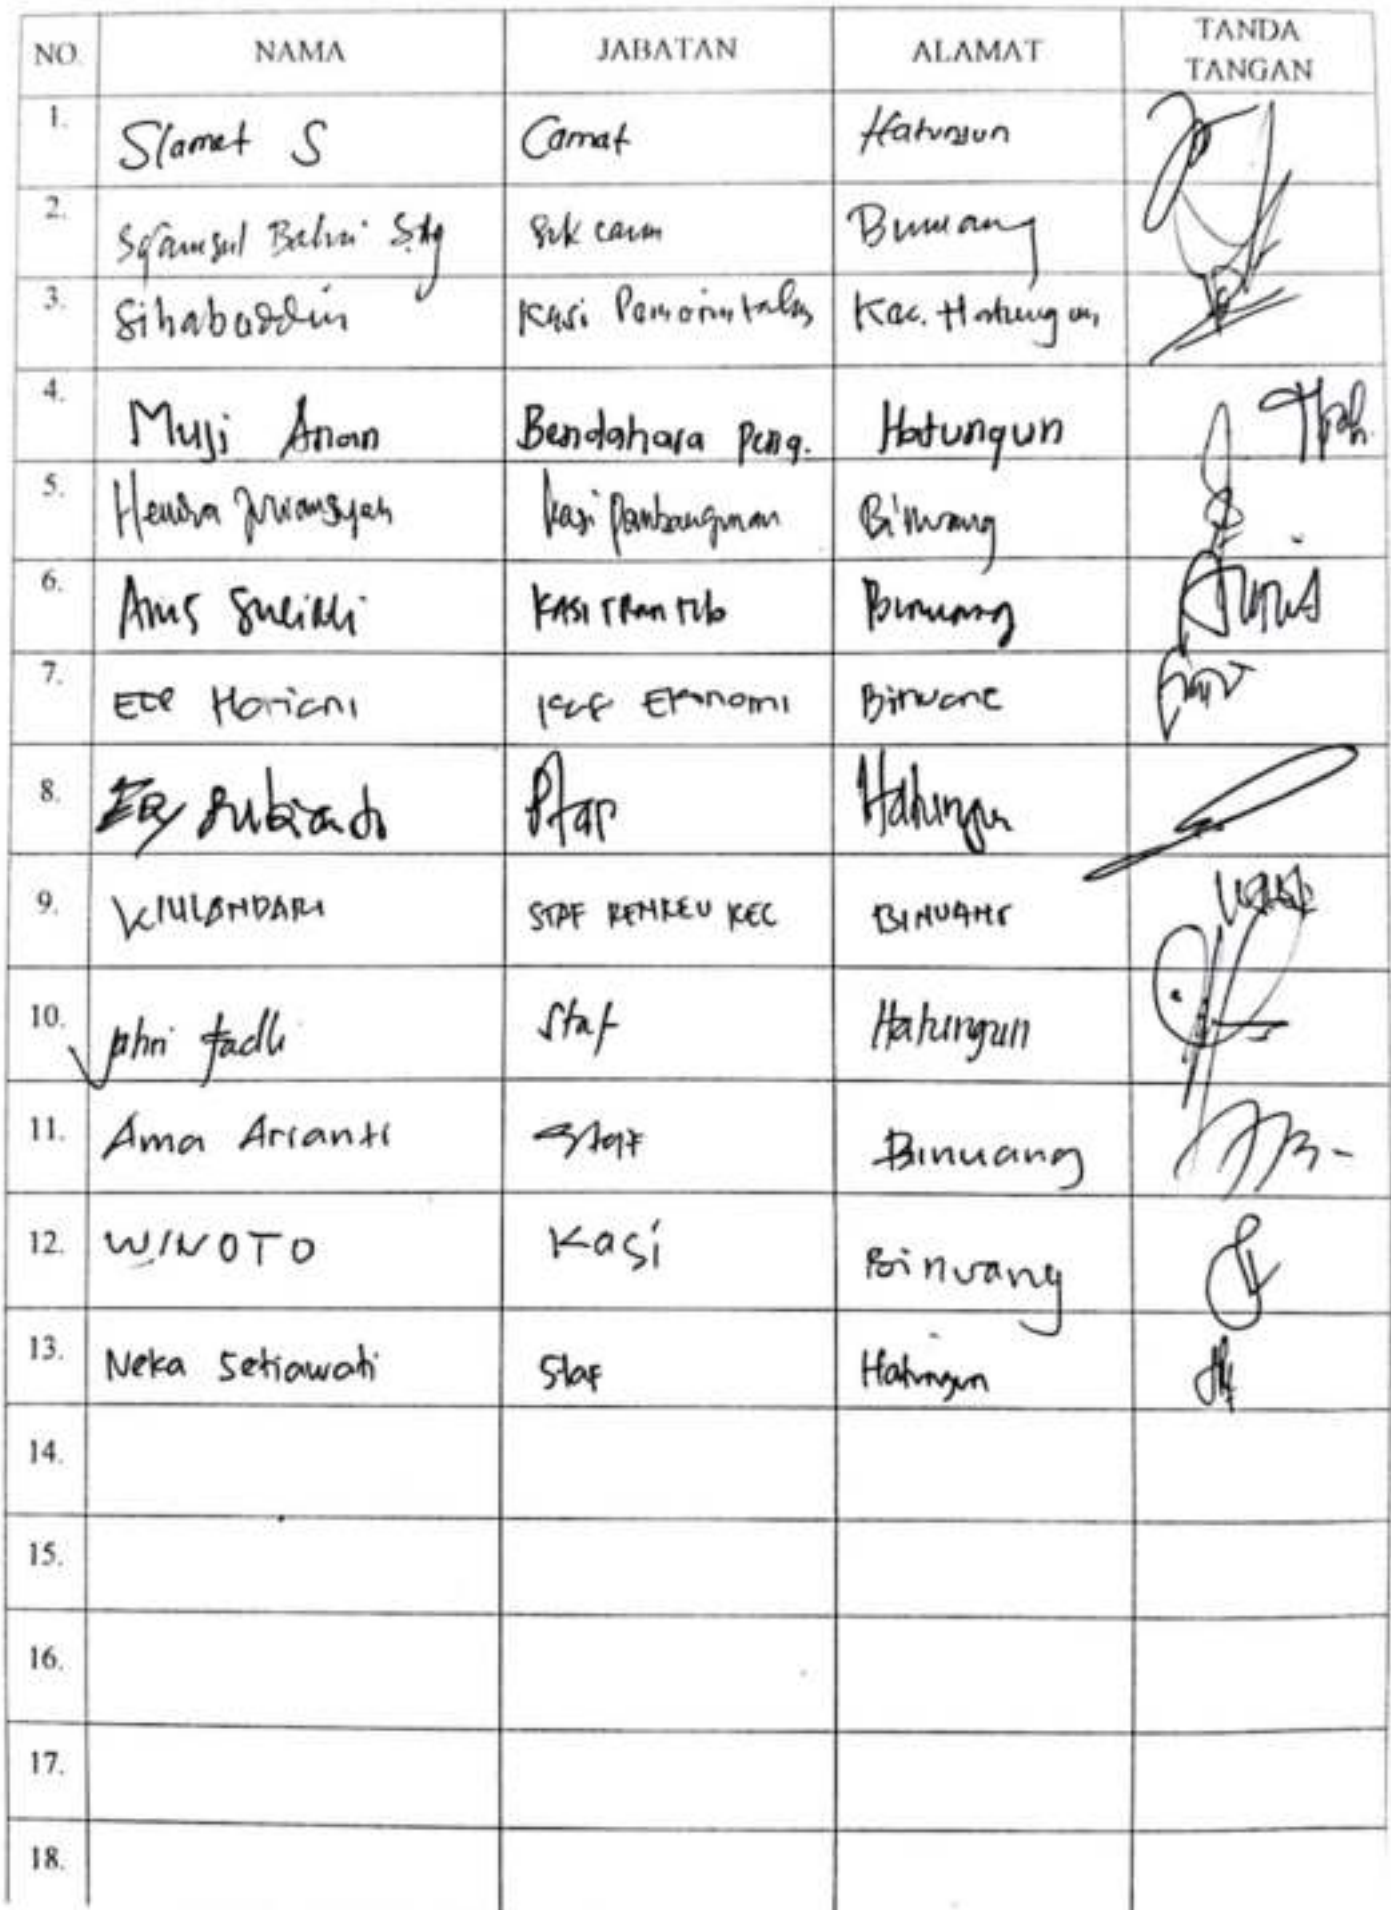 NO. NAMA JABATAN ALAMAT TANDA TANGAN
1. Slamet S Camat Hatungun
2. Syamsul Bahri S.Ag Sekcam Binuang
3. Sihabuddin Kasi Pemerintahan Kec. Hatungun
4. Muji Anan Bendahara Peng. Hatungun
5. Hendra Binuang
6. Anis KASI TRANTIB Binuang
7. Hariani Ekonomi Binuang
8. Staf Hatungun
9. WULANDARI STAF RENKEU KEC BINUANG
10. Fadli Staf Hatungun
11. Ama Arianti Staf Binuang
12. WINOTO Kasi Binuang
13. Neka Setiawati Staf Hatungun
14.
15.
16.
17.
18.